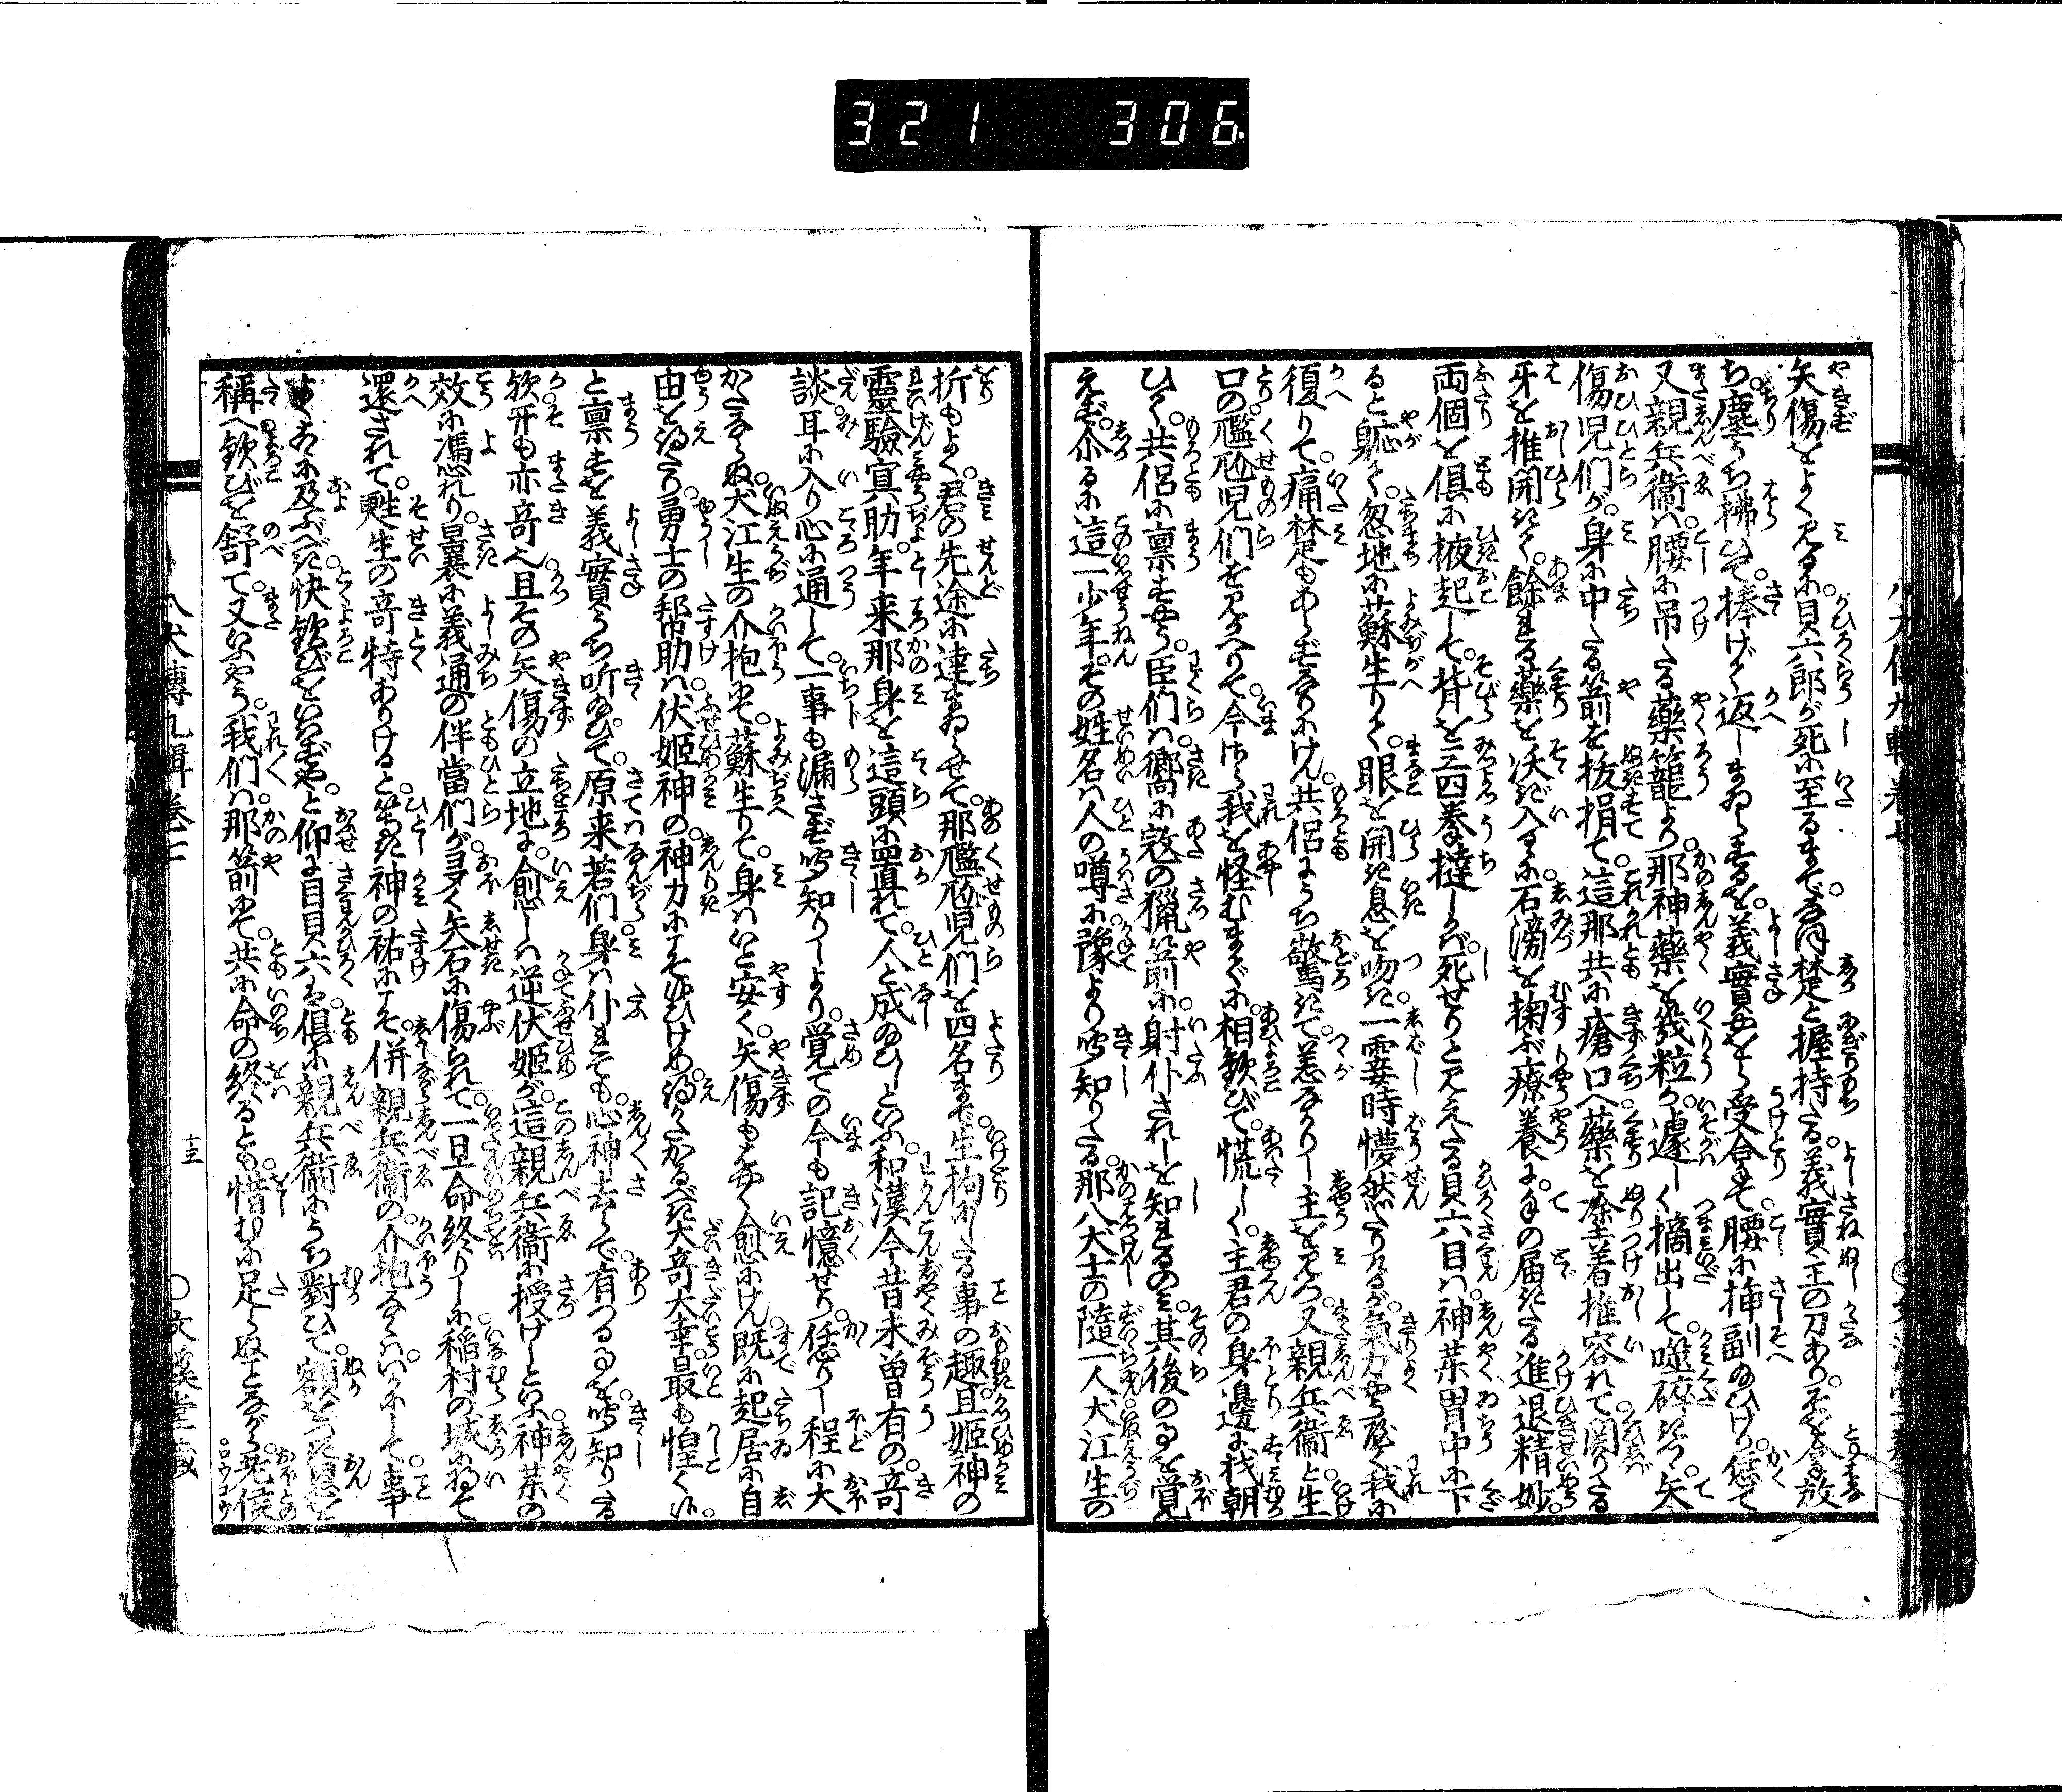 321 306
矢傷をよく見るに。貝六郎が死に至るまで。なほ楚と握持たる。義實主の刀あり。そを令放
ち。塵うち拂ひて。捧げて返しまゐらするを。義實やをら受合して。腰に挿副給ひけり。恁て
又親兵衛は。腰に吊たる藥籠より。那神藥を幾粒か。遽しく摘出して。噬碎きつ。矢
傷児們が。身に中たる箭を抜捐て。這那共に瘡口へ藥を塗着推容れて。関りたる
牙を推開きて。餘れる藥を沃ぎ入るゝに。石滂を掬ぶ療養に。手の届きたる進退精妙。
両個を倶に掖起して。背を三四巻撻しかば。死せりと見えたる貝六目は。神藥胃中に下
ると軈て。忽地に蘇生りて。眼を開き息を吻き。一霎時懵然たりけるが。氣力やう丶く我に
復りて。痛楚もあらずなりにけん。共侶にうち驚きて。恙なかりし主を見つ。又親兵衛と。生
口の尷尬児們を見かへりて。今さら我を怪むまでに。相歓びて。慌しく。主君の身邊に找朝
ひて。共侶に禀すやう。臣們は嚮に寇の獵箭に。射仆されしを知れるのみ。其後の事を覚
えず。尓るに這一少年。その姓名は人の噂に。豫より聞知りたる。那八犬士の隨一人。犬江生の
折もよく。君の先途に達まゐらせて。那尷尬児們を。四名まで。生拘にしたる事の趣。且姫神の
靈驗冥助。年来那身を這頭に。置れて。人と成給ひしといふ。和漢今昔未曽有の。竒
談。耳に入り心に通して。一事も漏さず聞知りしより。覚ての今も記憶せり。恁りし程に大
かたならぬ。犬江生の介抱にて。蘇生りて。身はいと安く。矢傷も又やく愈にけん。既に起居に自
由を得たり。勇士の幇助は。伏姫神の。神力にこそ依ひけめ。得がたかるべき大竒大幸。最も惶く候。
と禀すを義實うち听給ひて。原来若們。身は仆れても。心神去らで。有つる事を。聞知りたる
歟。开も亦竒也。且その矢傷の立地に。愈しは逆伏姫が。這親兵衛に授けしといふ。神藥の
效に馮れり。曩に義通の伴當們が。多く矢石に傷られて。一旦命終りしに。稲村の城にゐて
還されて。甦生の竒特ありけると。等き神の祐にこそ。併親兵衛の。介抱ならでは。いかにして。事
茲に及ぶべき。快歓びをいはずや。と仰に目貝六は。倶に親兵衛にうち對ひて。額をつき恩を
稱へ歓びを舒て。又いふやう。我們は。那箭にて。共に命の終るとも。惜むに足らぬことながら。老侯
八犬傳九輯巻七
十五
○文溪堂藏